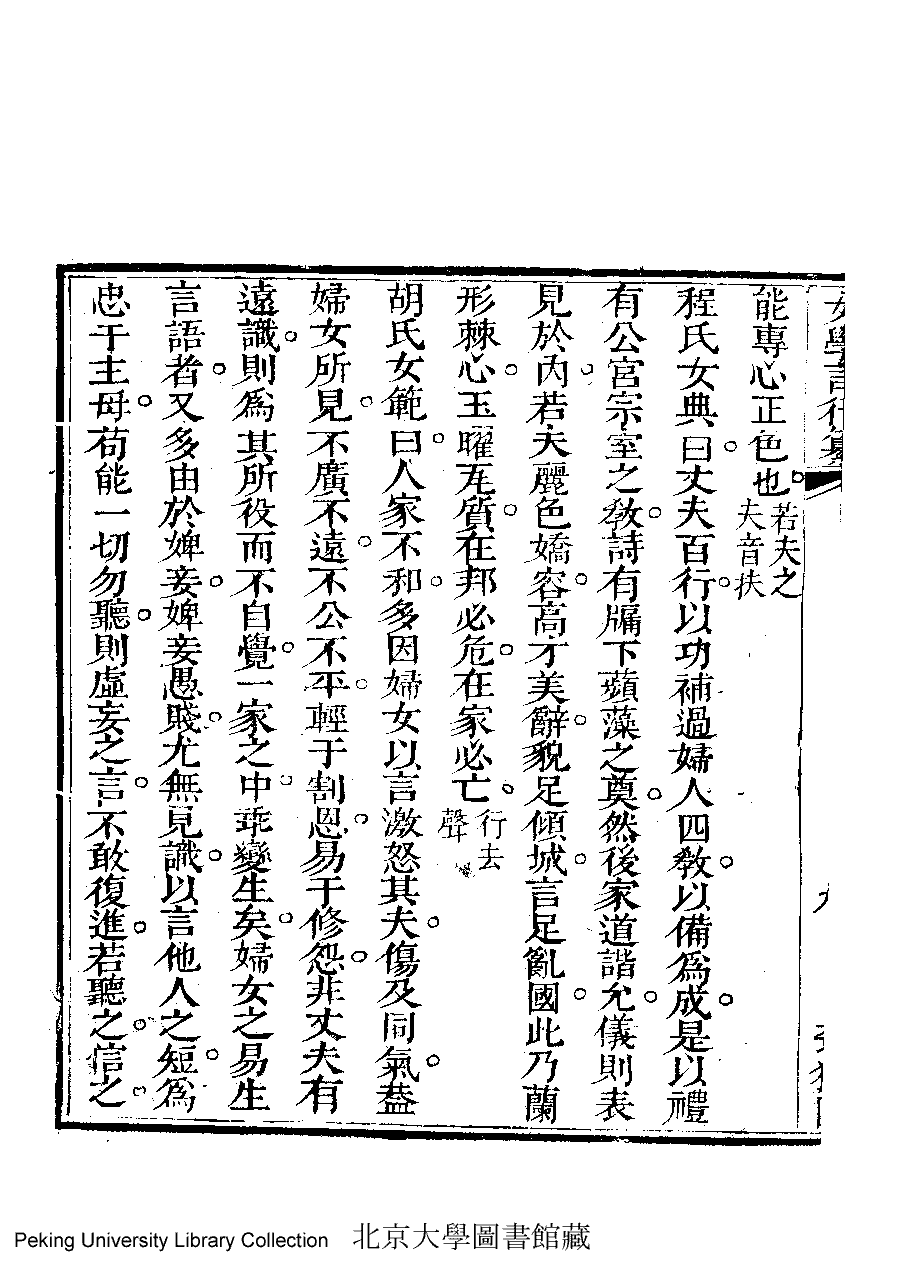 女學言行纂
九
能專心正色也。若夫之夫音扶
程氏女典曰。丈夫百行。以功補過婦人四敎。以備爲成。是以禮
有公宮宗室之敎。詩有牖下蘋藻之奠。然後家道諧允。儀則表
見於內。若夫麗色嬌容。高才美辭。貌足傾城。言足亂國。此乃蘭
形棘心。玉曜瓦質。在邦必危。在家必亡。行去聲
胡氏女範曰。人家不和。多因婦女以言激怒其夫。傷及同氣。葢
婦女所見。不廣不遠。不公不平。輕于割恩。易于修怨。非丈夫有
遠識。則爲其所役而不自覺。一家之中。乖變生矣。婦女之易生
言語者。又多由於婢妾。婢妾愚賤。尤無見識。以言他人之短。爲
忠于主母。苟能一切勿聽。則虛妄之言。不敢復進。若聽之。信之。
Peking University Library Collection 北京大學圖書館藏